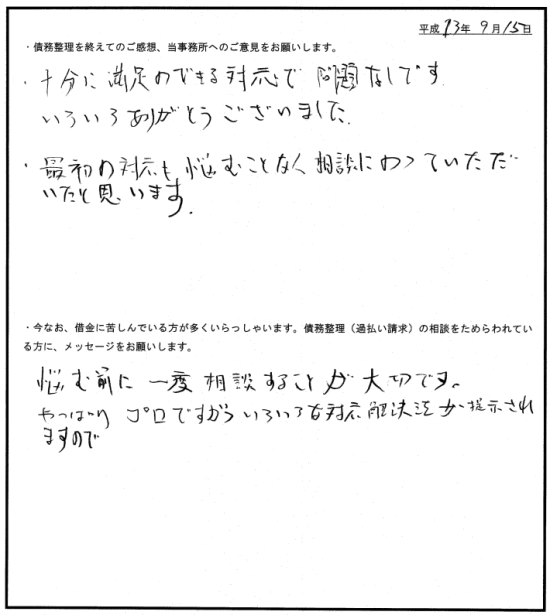 平成23年9月15日
・債務整理を終えてのご感想、当事務所へのご意見をお願いします。
・十分に満足のできる対応で問題なしです
いろいろありがとうございました。
・最初の対応も悩むことなく相談にのっていただ
いたと思います。
・今なお、借金に苦しんでいる方が多くいらっしゃいます。債務整理（過払い請求）の相談をためらわれてい
る方に、メッセージをお願いします。
悩む前に一度相談することが大切です。
やっぱり プロですからいろいろな対応解決法が提示され
ますので